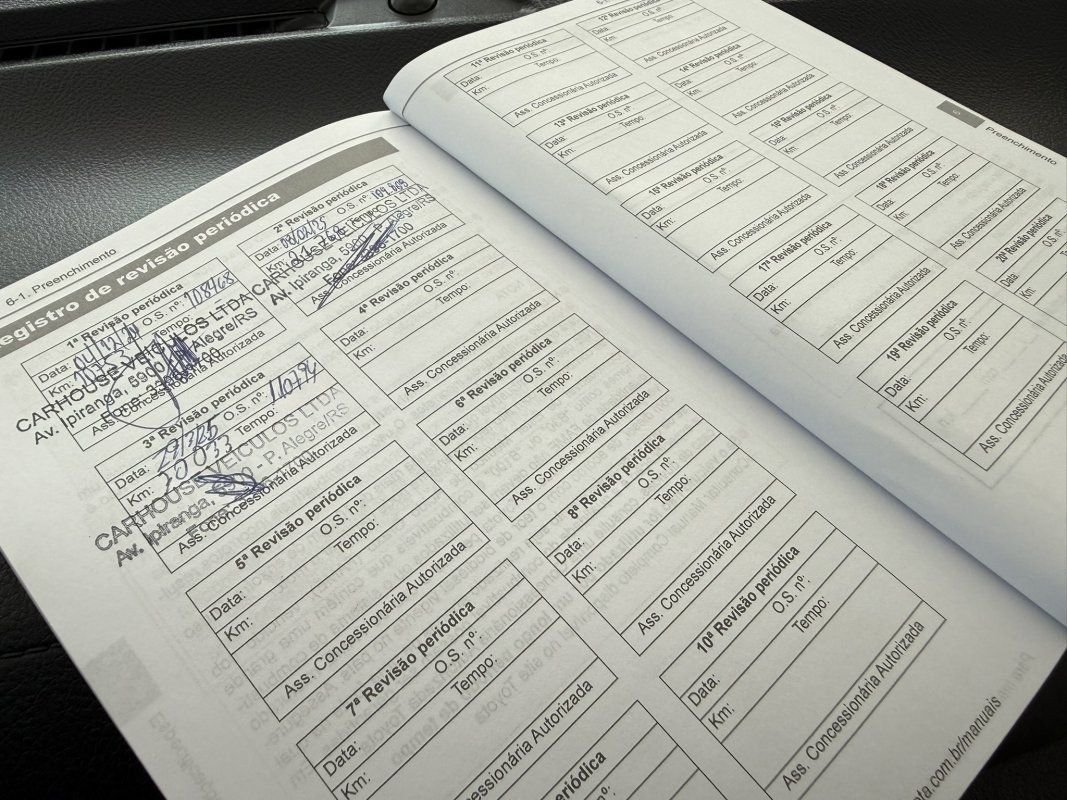 6-1. Preenchimento
egistro de revisão periódica
1ª Revisão periódica
Data: O.S. nº: 108468
Km: Tempo:
CARHOUSE VEÍCULOS LTDA
Av. Ipiranga, 5900 Alegre/RS
Ass. Concessionária Autorizada
2ª Revisão periódica
Data: O.S. nº: 109.809
Km: Tempo:
CARHOUSE VEÍCULOS LTDA
Av. Ipiranga, 5900 Alegre/RS
Ass. Concessionária Autorizada
3ª Revisão periódica
Data: O.S. nº: 110794
Km: 20033 Tempo:
CARHOUSE VEÍCULOS LTDA
Av. Ipiranga, 5900 - P. Alegre/RS
Ass. Concessionária Autorizada
4ª Revisão periódica
Data: O.S. nº:
Km: Tempo:
Ass. Concessionária Autorizada
5ª Revisão periódica
Data: O.S. nº:
Km: Tempo:
Ass. Concessionária Autorizada
6ª Revisão periódica
Data: O.S. nº:
Km: Tempo:
Ass. Concessionária Autorizada
7ª Revisão periódica
Data: O.S. nº:
Km: Tempo:
8ª Revisão periódica
Data: O.S. nº:
Km: Tempo:
Ass. Concessionária Autorizada
periódica
10ª Revisão periódica
Data: O.S. nº:
Km: Tempo:
Ass. Concessionária Autorizada
ta.com.br/manuais
Preenchimento
11ª Revisão periódica
Data: O.S. nº:
Km: Tempo:
Ass. Concessionária Autorizada
12ª Revisão periódica
Data: O.S. nº:
Km: Tempo:
Ass. Concessionária Autorizada
13ª Revisão periódica
Data: O.S. nº:
Km: Tempo:
Ass. Concessionária Autorizada
14ª Revisão periódica
Data: O.S. nº:
Km: Tempo:
Ass. Concessionária Autorizada
15ª Revisão periódica
Data: O.S. nº:
Km: Tempo:
Ass. Concessionária Autorizada
16ª Revisão periódica
Data: O.S. nº:
Km: Tempo:
Ass. Concessionária Autorizada
17ª Revisão periódica
Data: O.S. nº:
Km: Tempo:
Ass. Concessionária Autorizada
18ª Revisão periódica
Data: O.S. nº:
Km: Tempo:
Ass. Concessionária Autorizada
19ª Revisão periódica
Data: O.S. nº:
Km: Tempo:
Ass. Concessionária Autorizada
20ª Revisão periódica
Data: O.S. nº:
Km: Tempo:
Ass. Concessionária